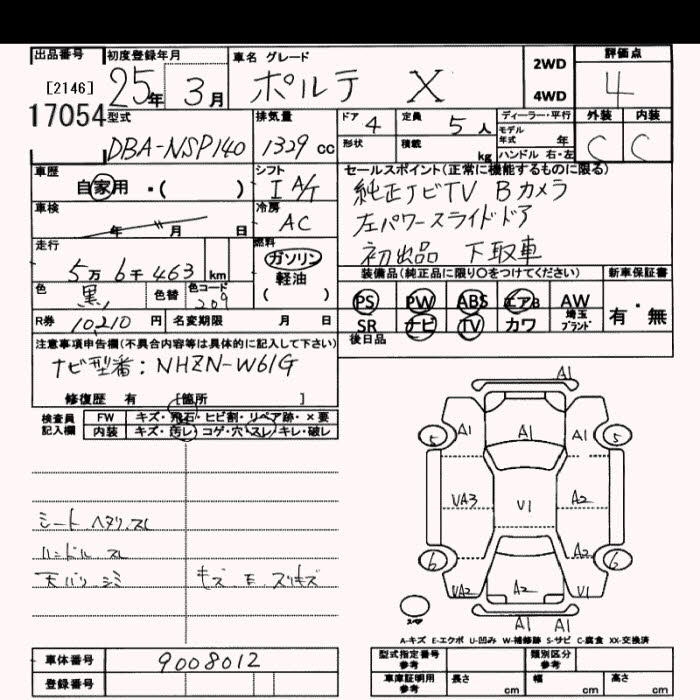 出品番号 初度登録年月 車名 グレード 2WD 評価点
[2146] 25年 3月 ポルテ X 4WD 4
17054 型式 排気量 ドア 定員 ディーラー・平行 外装 内装
DBA-NSP140 1329 cc 4 5人 モデル年式 年 C C
形状 積載 kg ハンドル 右・左
車歴 シフト セールスポイント(正常に機能するものに限る)
自家用 ・( ) I A/T 純正ナビTV Bカメラ
車検 冷房 左パワースライドドア
年 月 日 AC 初出品 下取車
走行 燃料 装備品(純正品に限り○をつけてください) 新車保証書
5万6千463 km ガソリン
軽油
( )
PS PW ABS エアB AW 有・無
色 黒 色替 色コード 209
SR ナビ TV カワ 埼玉ブランド
R券 10,210 円 名変期限 月 日 後日品
注意事項申告欄(不具合内容等は具体的に記入して下さい)
ナビ型番:NHZN-W61G
修復歴 有 [箇所 ]
検査員記入欄 FW キズ・飛石・ヒビ割・リペア跡・×要
内装 キズ・汚レ・コゲ・穴・スレ・キレ・破レ
A1
A1 A1 A1
5 5
VA3 V1 A2
A2
6 6
VA2 A2 V1
A1 A1
シート ヘタリ.スレ
ハンドル スレ
天バリ.シミ キズ.E.スリキズ
A-キズ E-エクボ U-凹み W-補修跡 S-サビ C-腐食 XX-交換済
車体番号 9008012 型式指定番号 参考 類別区分 参考
登録番号 車庫証明用 参考 長さ cm 幅 cm 高さ cm